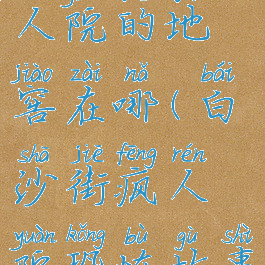 人院的地
jiào zài nǎ bái
窖在哪(白
shā jiē fēng rén
沙街疯人
yuàn kǒng bù gù shì
院恐怖故事